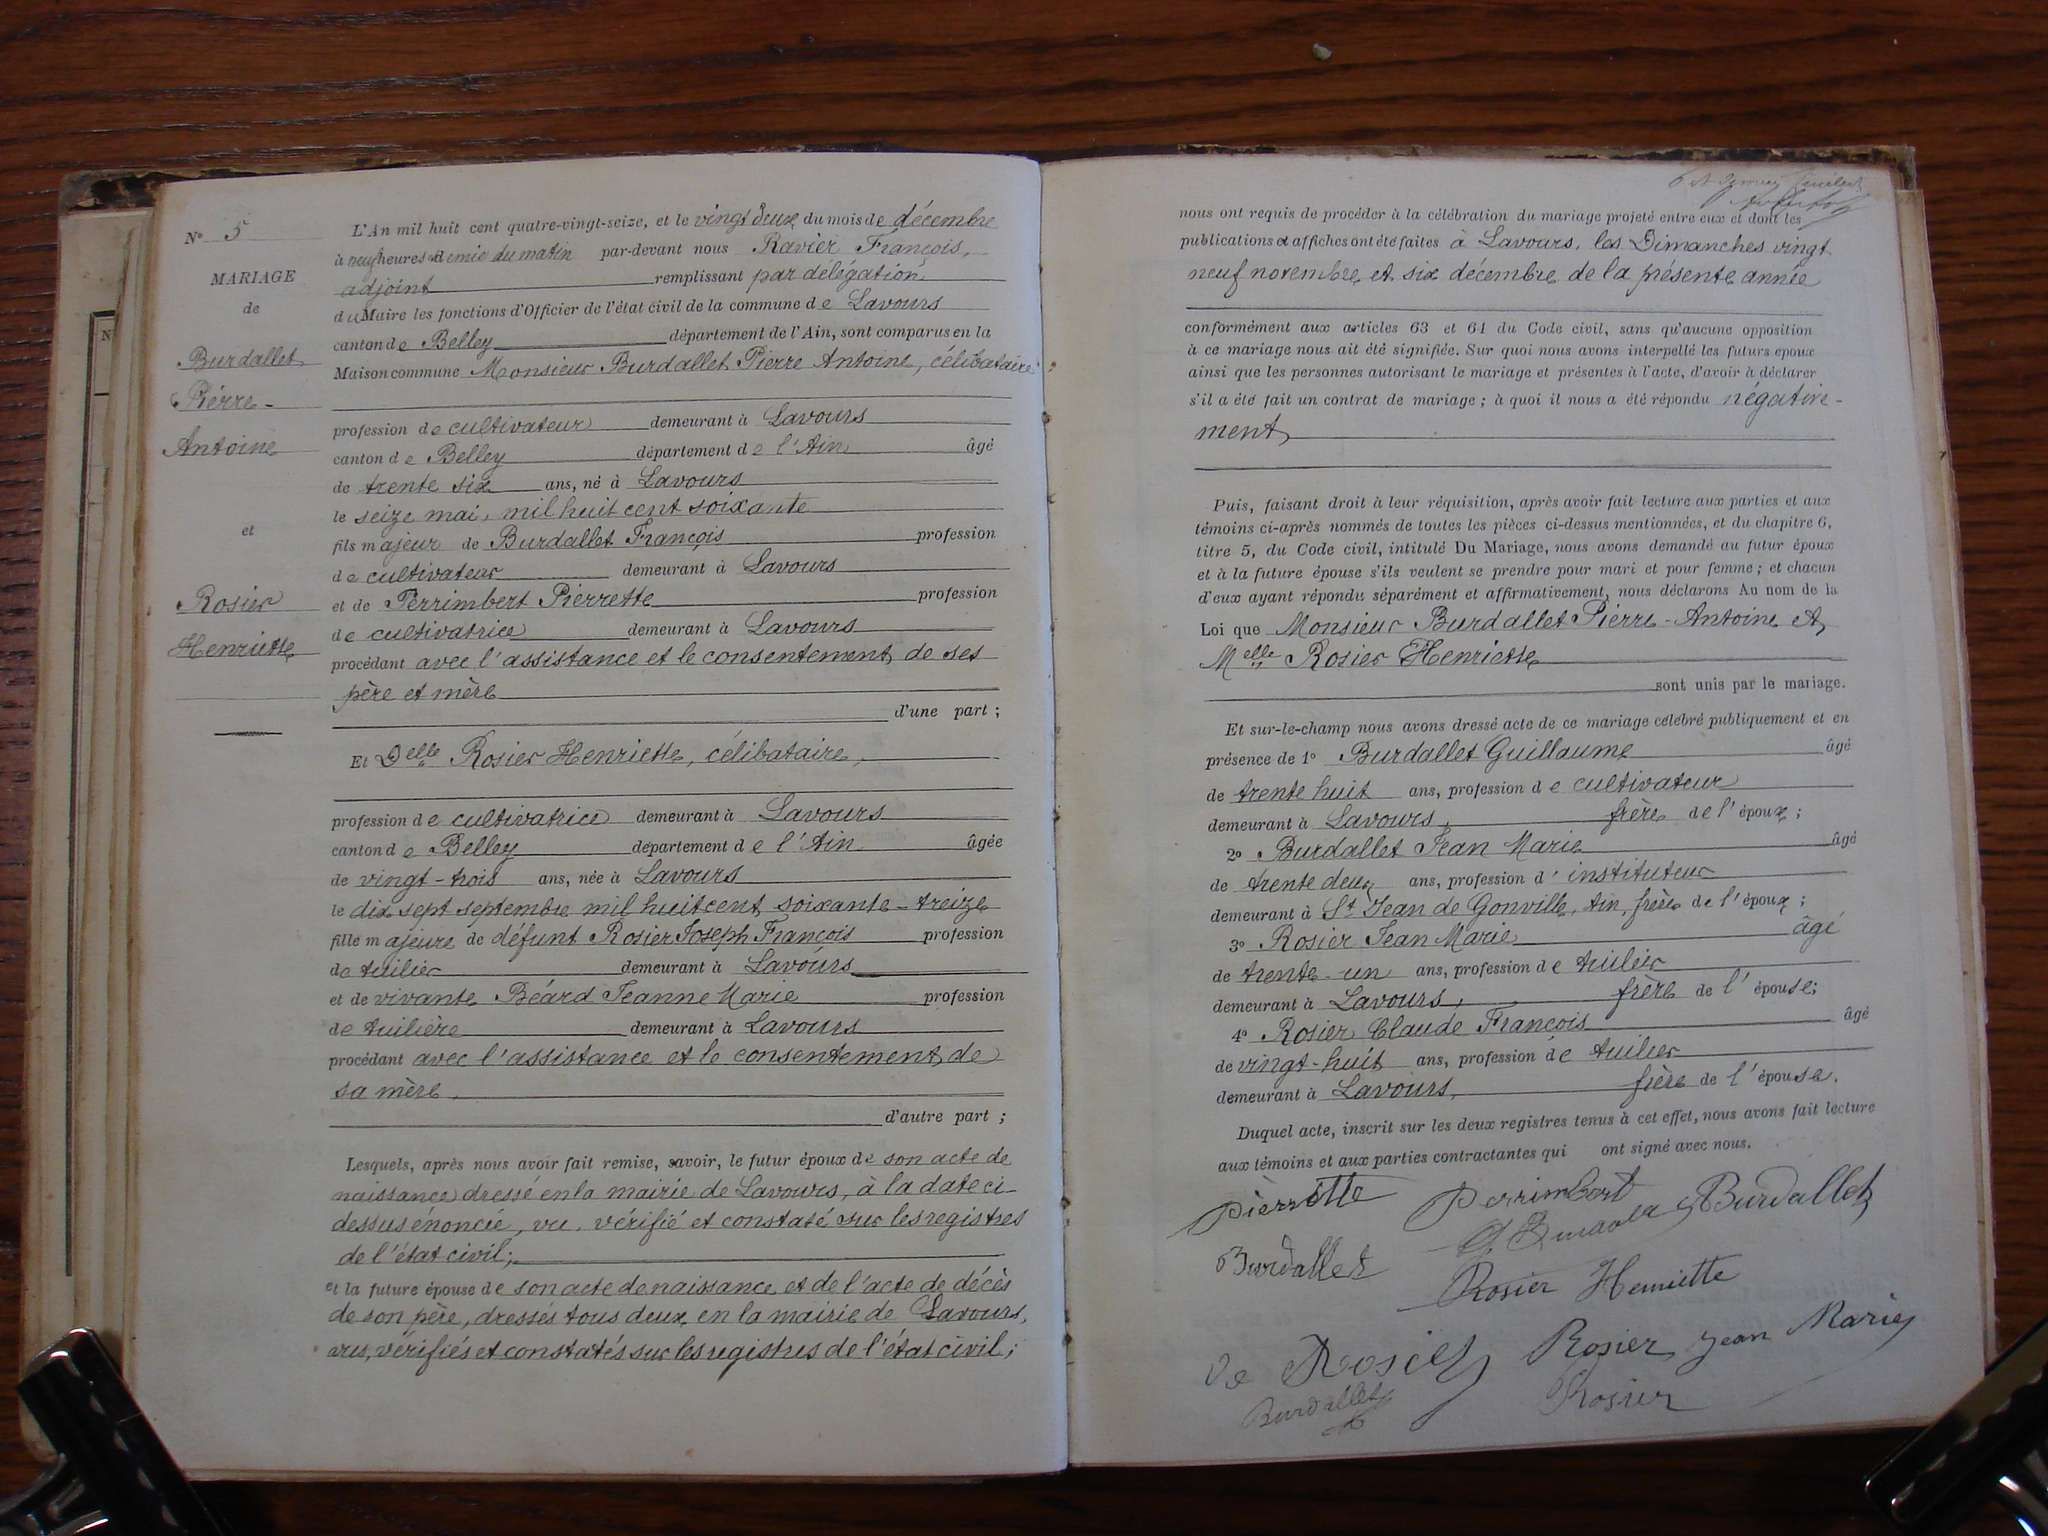 N° 5
MARIAGE
de
Burdallet
Pierre-
Antoine
et
Rosier
Henriette
L'An mil huit cent quatre-vingt-seize, et le vingt deux du mois de décembre
à neuf heures et demie du matin par-devant nous Ravier François,
adjoint remplissant par délégation
du Maire les fonctions d'Officier de l'état civil de la commune de Lavours
canton de Belley département de l'Ain, sont comparus en la
Maison commune Monsieur Burdallet Pierre Antoine, célibataire
profession de cultivateur demeurant à Lavours
canton de Belley département de l'Ain âgé
de trente six ans, né à Lavours
le seize mai, mil huit cent soixante
fils majeur de Burdallet François profession
de cultivateur demeurant à Lavours
et de Perrimbert Pierrette profession
de cultivatrice demeurant à Lavours
procédant avec l'assistance et le consentement de ses
père et mère
d'une part ;
Et Delle Rosier Henriette, célibataire,
profession de cultivatrice demeurant à Lavours
canton de Belley département de l'Ain âgée
de vingt-trois ans, née à Lavours
le dix sept septembre mil huit cent soixante-treize
fille majeure de défunt Rosier Joseph François profession
de tuilier demeurant à Lavours
et de vivante Béard Jeanne Marie profession
de tuilière demeurant à Lavours
procédant avec l'assistance et le consentement de
sa mère.
d'autre part ;
Lesquels, après nous avoir fait remise, savoir, le futur époux de son acte de
naissance dressé en la mairie de Lavours, à la date ci-
dessus énoncée, vu, vérifié et constaté sur les registres
de l'état civil;
et la future épouse de son acte de naissance et de l'acte de décès
de son père, dressés tous deux en la mairie de Lavours,
vus, vérifiés et constatés sur les registres de l'état civil;
nous ont requis de procéder à la célébration du mariage projeté entre eux et dont les
publications et affiches ont été faites à Lavours, les Dimanches vingt
neuf novembre et six décembre de la présente année
conformément aux articles 63 et 64 du Code civil, sans qu'aucune opposition
à ce mariage nous ait été signifiée. Sur quoi nous avons interpellé les futurs epoux
ainsi que les personnes autorisant le mariage et présentes à l'acte, d'avoir à déclarer
s'il a été fait un contrat de mariage ; à quoi il nous a été répondu négative-
ment
Puis, faisant droit à leur réquisition, après avoir fait lecture aux parties et aux
témoins ci-après nommés de toutes les pièces ci-dessus mentionnées, et du chapitre 6,
titre 5, du Code civil, intitulé Du Mariage, nous avons demandé au futur époux
et à la future épouse s'ils veulent se prendre pour mari et pour femme ; et chacun
d'eux ayant répondu séparément et affirmativement, nous déclarons Au nom de la
Loi que Monsieur Burdallet Pierre-Antoine et
Melle Rosier Henriette
sont unis par le mariage.
Et sur-le-champ nous avons dressé acte de ce mariage célébré publiquement et en
présence de 1° Burdallet Guillaume âgé
de trente huit ans, profession de cultivateur
demeurant à Lavours, frère de l'époux ;
2° Burdallet Jean Marie âgé
de trente deux ans, profession d' instituteur
demeurant à St Jean de Gonville, Ain, frère de l'époux ;
3° Rosier Jean Marie âgé
de trente-un ans, profession de tuilier
demeurant à Lavours, frère de l'épouse;
4° Rosier Claude François âgé
de vingt-huit ans, profession de tuilier
demeurant à Lavours, frère de l'épouse.
Duquel acte, inscrit sur les deux registres tenus à cet effet, nous avons fait lecture
aux témoins et aux parties contractantes qui ont signé avec nous.
Pièrrette Perrimbert
Burdallet
Burdallet
Rosier Henriette
Ve Rosier Rosier Jean Marie
Burdallet
Rosier